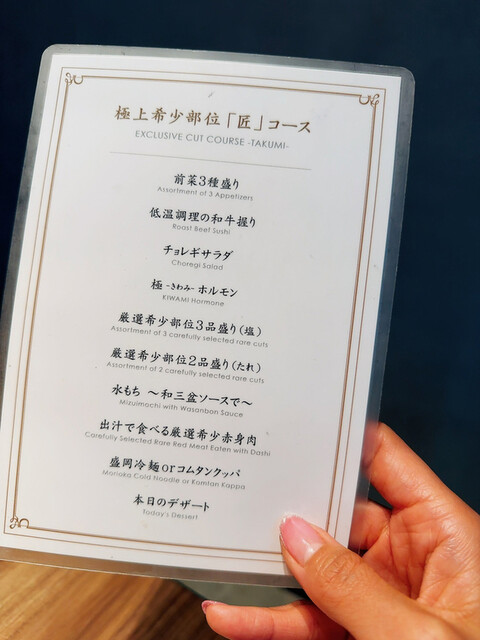 極上希少部位「匠」コース
EXCLUSIVE CUT COURSE -TAKUMI-
前菜3種盛り
Assortment of 3 Appetizers
低温調理の和牛握り
Roast Beef Sushi
チョレギサラダ
Choregi Salad
極 -きわみ- ホルモン
KIWAMI Hormone
厳選希少部位3品盛り(塩)
Assortment of 3 carefully selected rare cuts
厳選希少部位2品盛り(たれ)
Assortment of 2 carefully selected rare cuts
水もち 〜和三盆ソースで〜
Mizuimochi with Wasanbon Sauce
出汁で食べる厳選希少赤身肉
Carefully Selected Rare Red Meat Eaten with Dashi
盛岡冷麺orコムタンクッパ
Morioka Cold Noodle or Komtan Koppa
本日のデザート
Today's Dessert